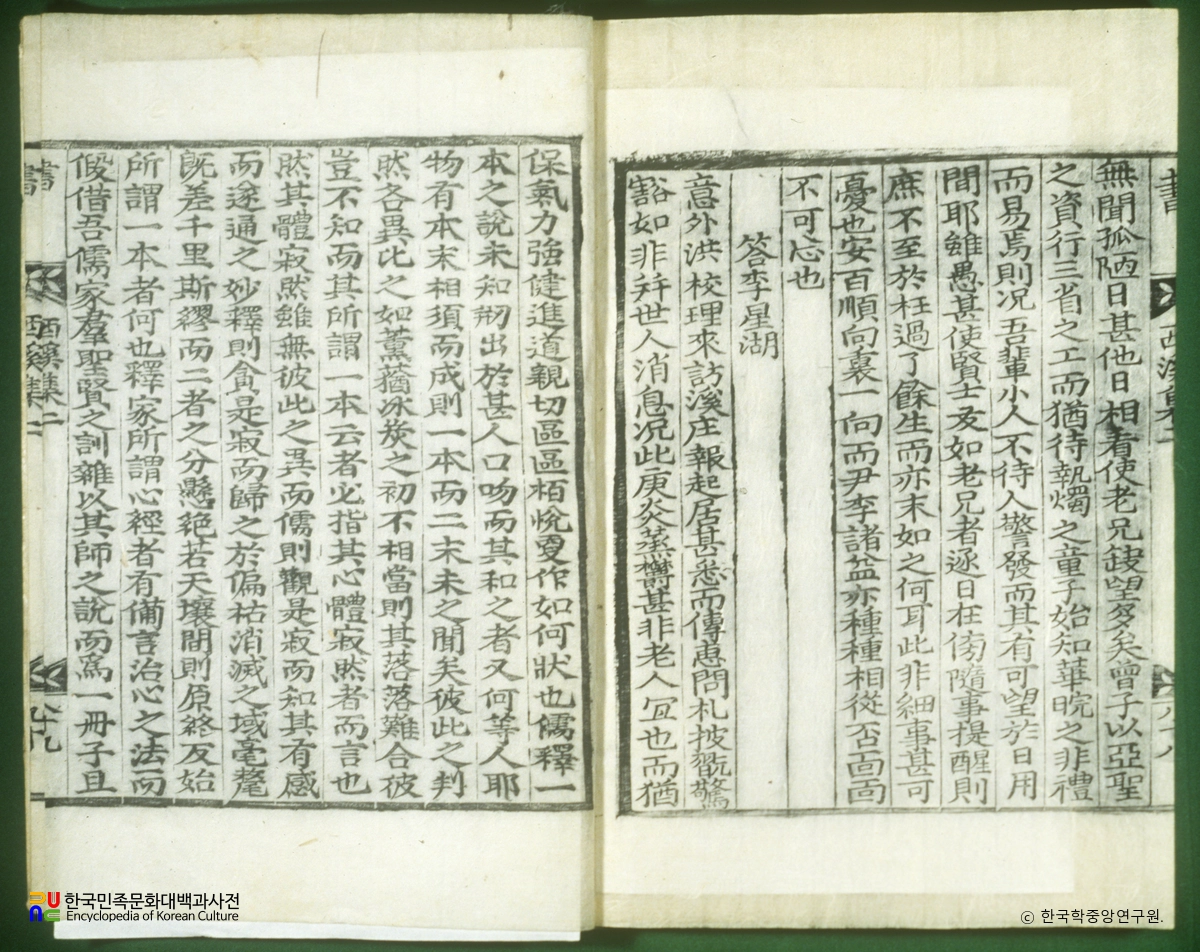 書
西溪集二
八十八
無聞孤陋日甚他日相看使老兄缺望多矣曾子以亞聖
之資行三省之工而猶待執燭之童子始知華晥之非禮
而易焉則况吾輩小人不待人警發而其有可望於日用
間耶雖愚甚使賢士友如老兄者逐日在傍隨事提醒則
庶不至於枉過了餘生而亦末如之何耳此非細事甚可
憂也安百順向裏一向而尹李諸益亦種種相從否靣靣
不可忘也
答李星湖
意外洪校理來訪溪庄報起居甚悉而傳惠問札披翫驚
豁如非幷世人消息况此庚炎蒸欝甚非老人冝也而猶
保氣力強健進道親切區區栢恱䨱作如何狀也儒釋一
本之說未知刱出於甚人口吻而其和之者又何等人耶
物有本末相須而成則一本而二末未之聞矣彼此之判
然各異比之如薰蕕冰炭之初不相當則其落落難合彼
豈不知而其所謂一本云者必指其心體寂然者而言也
然其體寂然雖無彼此之異而儒則觀是寂而知其有感
而遂通之妙釋則貪是寂而歸之於偏枯消滅之域毫氂
旣差千里斯繆而二者之分懸絶若天壤間則原終反始
所謂一本者何也釋家所謂心經者有備言治心之法而
假借吾儒家羣聖賢之訓雜以其師之說而寫一冊子且
書
西溪集二
八十九
한국민족문화대백과사전
Encyclopedia of Korean Culture
© 한국학중앙연구원.